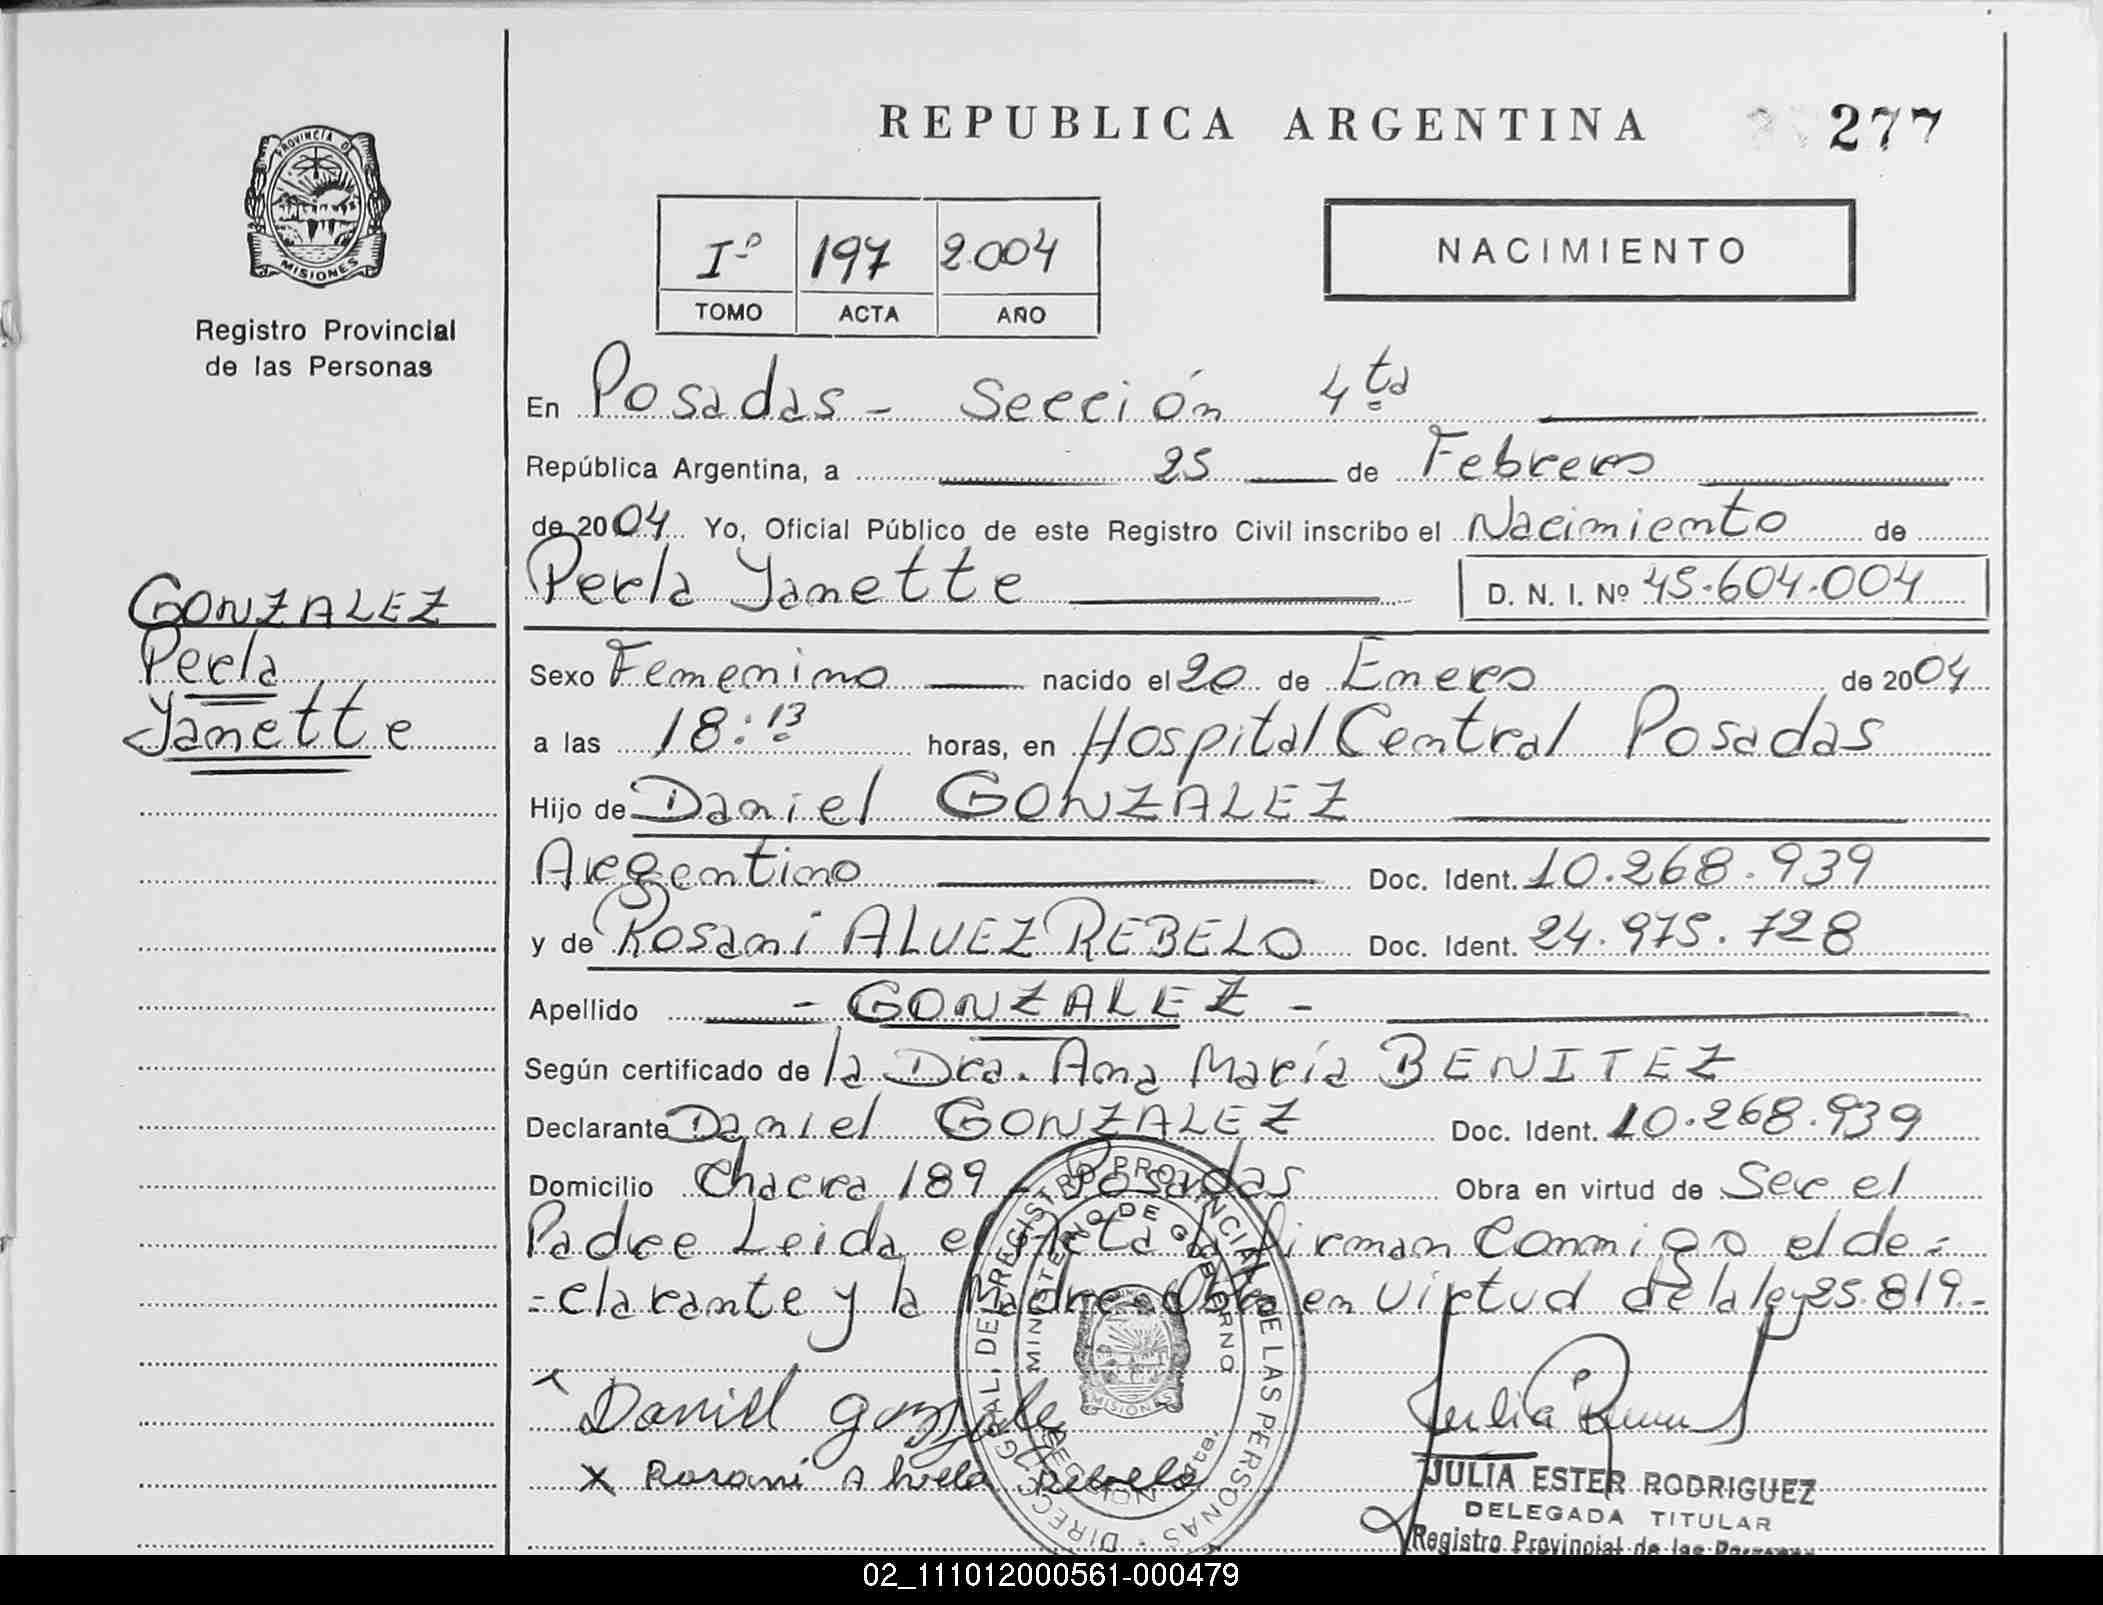 REPUBLICA ARGENTINA
277
PROVINCIA D
MISIONES
Registro Provincial
de las Personas
Iº 197 2.004
TOMO ACTA AÑO
NACIMIENTO
En Posadas - Sección 4ta
República Argentina, a 25 de Febrero
de 2004 Yo, Oficial Público de este Registro Civil inscribo el Nacimiento de
Perla Yanette D. N. I. Nº 45.604.004
GONZALEZ
Perla
Yanette
Sexo Femenino nacido el 20 de Enero de 2004
a las 18:13 horas, en Hospital Central Posadas
Hijo de Daniel GONZALEZ
Argentino Doc. Ident. 10.268.939
y de Rosani ALVEZ REBELO Doc. Ident. 24.975.728
Apellido - GONZALEZ -
Según certificado de la Dra. Ana María BENITEZ
Declarante Daniel GONZALEZ Doc. Ident. 10.268.939
Domicilio Chacra 189 - Posadas Obra en virtud de Ser el
Padre Leida el Acta la firman conmigo el de=
=clarante y la Madre - Obra en virtud de la ley 25.819.-
x Daniel Gonzalez
x Rosani Rebelo
DIRECC. GRAL. DEL REGISTRO PROVINCIAL DE LAS PERSONAS
MINISTERIO DE GOBIERNO
MISIONES
JULIA ESTER RODRIGUEZ
DELEGADA TITULAR
Registro Provincial de las Personas
02_111012000561-000479